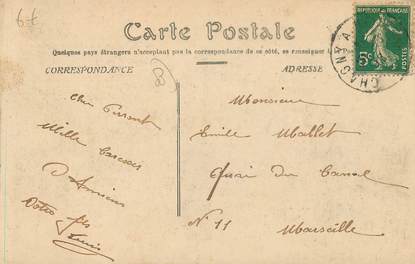 6f
Carte Postale
Quelques pays étrangers n'acceptant pas la correspondance de ce côté, se renseigner
CORRESPONDANCE
ADRESSE
REPUBLIQUE FRANÇAISE
5c
POSTES
CHAGNY
8
Mille
d'Amiens
Votre fils
Monsieur
Emile Mallet
Quai du Canal
N° 11
Marseille